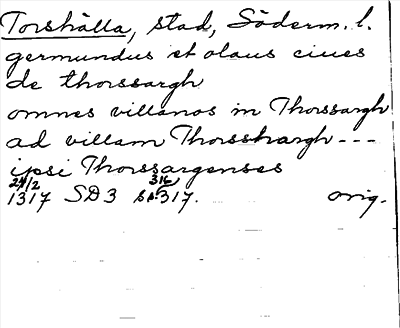 Torshälla, stad, Söderm. l.
germundus et olaus ciues
de thorssargh
omnes villanos in Thorssargh
ad villam Thorsshargh ---
ipsi Thorssargenses
24/2 316
1317 SD3 s. 317. orig.